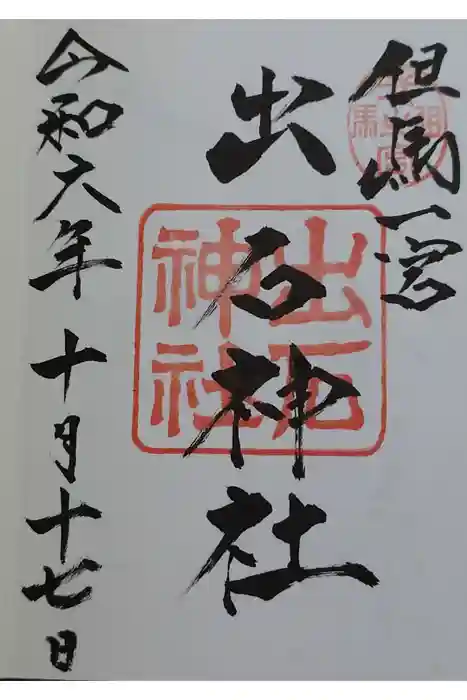 但馬一宮
出石神社
出石神社
令和六年十月十七日